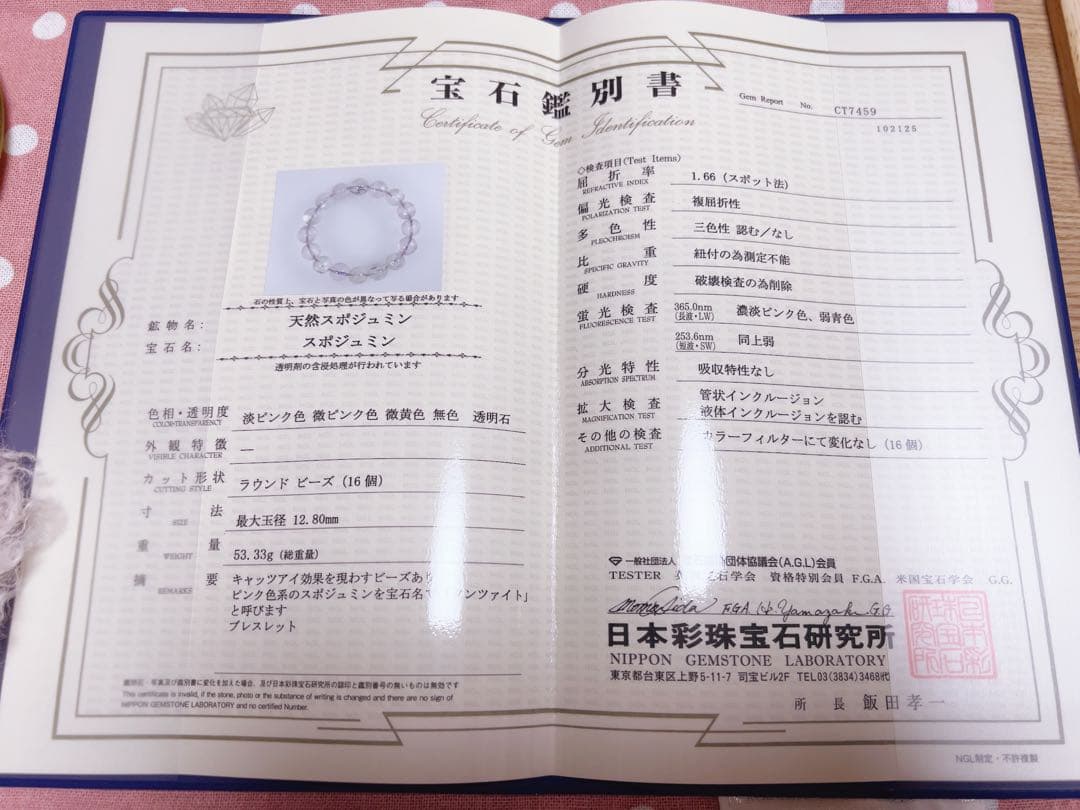 宝石鑑別書
Certificate of Gem Identification
Gem Report No. CT7459
102125
石の性質上、宝石と写真の色が異なって写る場合があります
鉱物名： 天然スポジュミン
宝石名： スポジュミン
透明剤の含浸処理が行われています
色相・透明度 淡ピンク色 微ピンク色 微黄色 無色 透明石
COLOR-TRANSPARENCY
外観特徴 ―
VISIBLE CHARACTER
カット形状 ラウンド ビーズ (16個)
CUTTING STYLE
寸法 最大玉径 12.80mm
SIZE
重量 53.33g (総重量)
WEIGHT
摘要 キャッツアイ効果を現わすビーズあり
REMARKS
ピンク色系のスポジュミンを宝石名で ンツァイト」
と呼びます
ブレスレット
写真及び鑑別書に変化を加えた場合、及び日本彩珠宝石研究所の鋼印と鑑別番号の無いものは無効です
This certificate is invalid, if the stone, photo or the substance of writing is changed and there are no sign of
NIPPON GEMSTONE LABORATORY and no certified Number.
◇検査項目(Test Items)
屈折率 1.66 (スポット法)
REFRACTIVE INDEX
偏光検査 複屈折性
POLARIZATION TEST
多色性 三色性 認む／なし
PLEOCHROISM
比重 紐付の為測定不能
SPECIFIC GRAVITY
硬度 破壊検査の為削除
HARDNESS
蛍光検査 365.0nm (長波・LW) 濃淡ピンク色、弱青色
FLUORESCENCE TEST
253.6nm (短波・SW) 同上弱
分光特性 吸収特性なし
ABSORPTION SPECTRUM
拡大検査 管状インクルージョン
MAGNIFICATION TEST
液体インクルージョンを認む
その他の検査 カラーフィルターにて変化なし (16個)
ADDITIONAL TEST
一般社団法人 団体協議会(A.G.L)会員
TESTER 宝石学会 資格特別会員 F.G.A. 米国宝石学会 G.G.
F.G.A. Yamazaki G.G.
日本彩珠宝石研究所
NIPPON GEMSTONE LABORATORY
東京都台東区上野5-11-7 司宝ビル2F TEL03(3834)3468㈹
所長 飯田孝一
NGL制定・不許複製